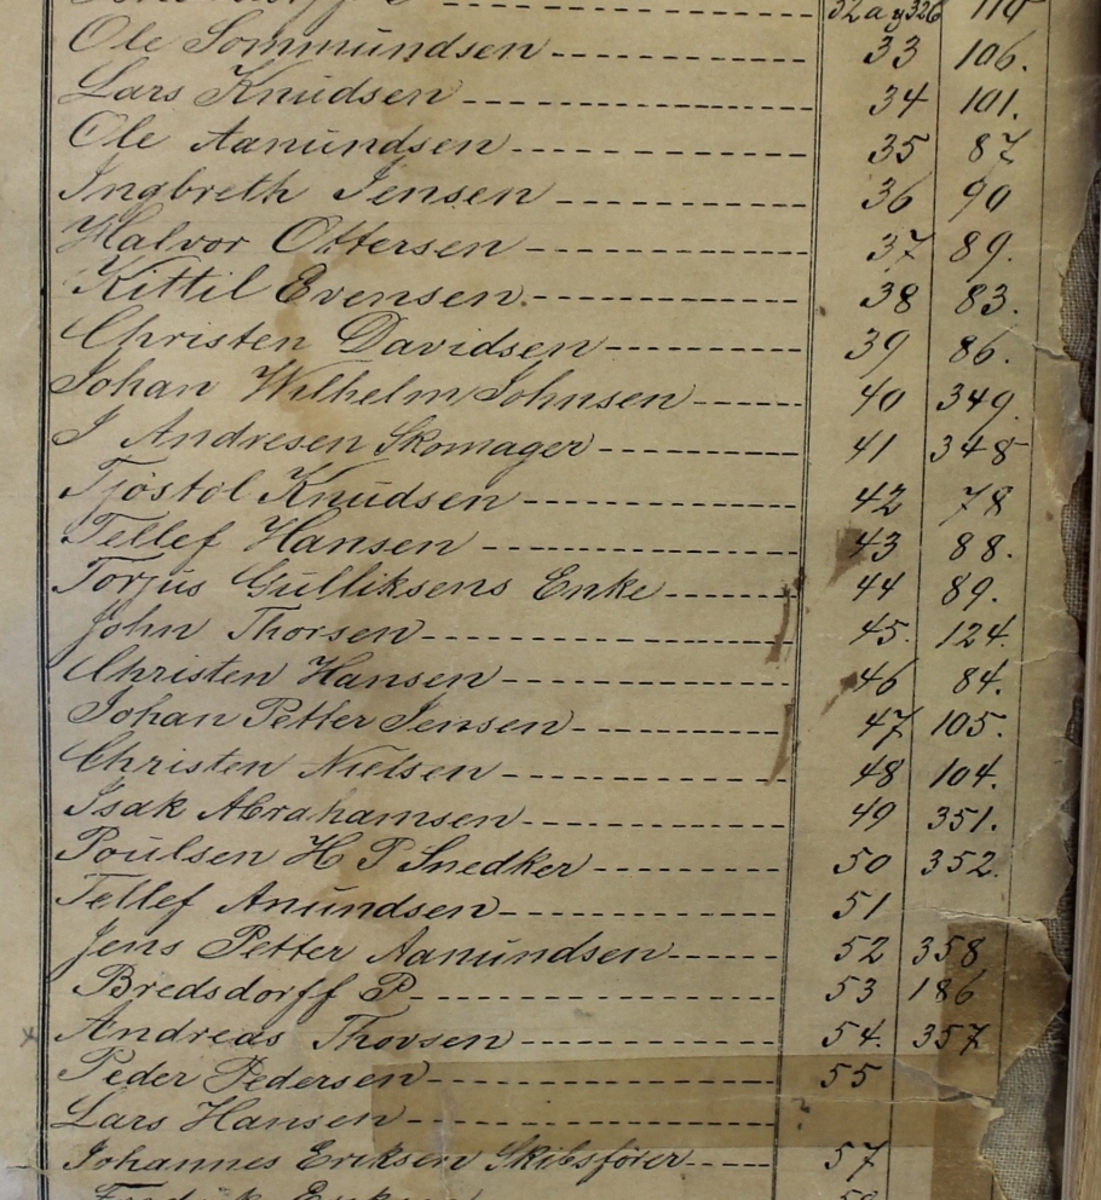 32a 32b 110
Ole Sommundsen 33 106.
Lars Knudsen 34 101.
Ole Aanundsen 35 87
Ingbreth Jensen 36 90
Halvor Ottersen 37 89.
Kittil Evensen 38 83.
Christen Davidsen 39 86.
Johan Wilhelm Johnsen 40 349.
J Andresen Skomager 41 348
Tjöstöl Knudsen 42 78
Tellef Hansen 43 88.
Torjus Gulliksens Enke 44 89.
John Thorsen 45. 124.
Christen Hansen 46 84.
Johan Petter Jensen 47 105.
Christen Nielsen 48 104.
Isak Abrahamsen 49 351.
Poulsen H P Snedker 50 352.
Tellef Anundsen 51
Jens Petter Aanundsen 52 358
Bredsdorff P 53 186
x Andreas Thorsen 54. 357
Peder Pedersen 55
Lars Hansen
Johannes Eriksen Skibsfører 57